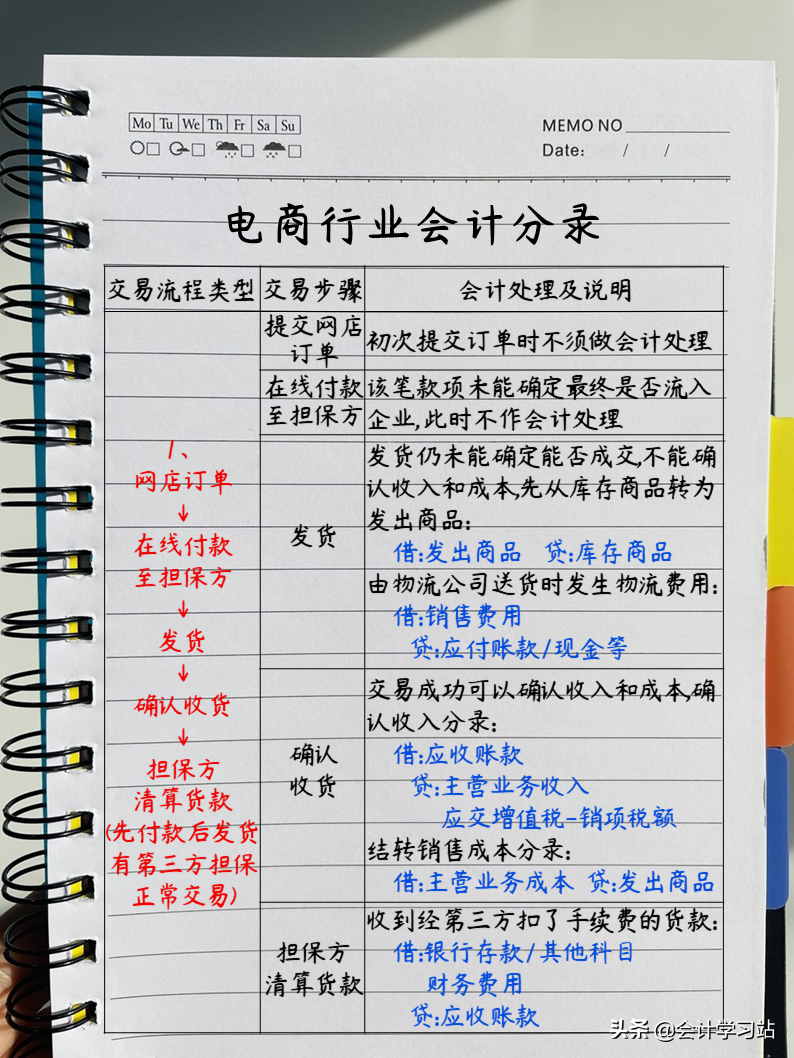 Mo Tu We Th Fr Sa Su
MEMO NO
Date: / /
电商行业会计分录
交易流程类型 交易步骤 会计处理及说明
1、
网店订单
↓
在线付款
至担保方
↓
发货
↓
确认收货
↓
担保方
清算货款
(先付款后发货
有第三方担保
正常交易)
提交网店
订单
初次提交订单时不须做会计处理
在线付款
至担保方
该笔款项未能确定最终是否流入
企业,此时不作会计处理
发货
发货仍未能确定能否成交,不能确
认收入和成本,先从库存商品转为
发出商品:
借:发出商品 贷:库存商品
由物流公司送货时发生物流费用:
借:销售费用
贷:应付账款/现金等
确认
收货
交易成功可以确认收入和成本,确
认收入分录:
借:应收账款
贷:主营业务收入
应交增值税-销项税额
结转销售成本分录:
借:主营业务成本 贷:发出商品
担保方
清算货款
收到经第三方扣了手续费的货款:
借:银行存款/其他科目
财务费用
贷:应收账款
头条 @会计学习站